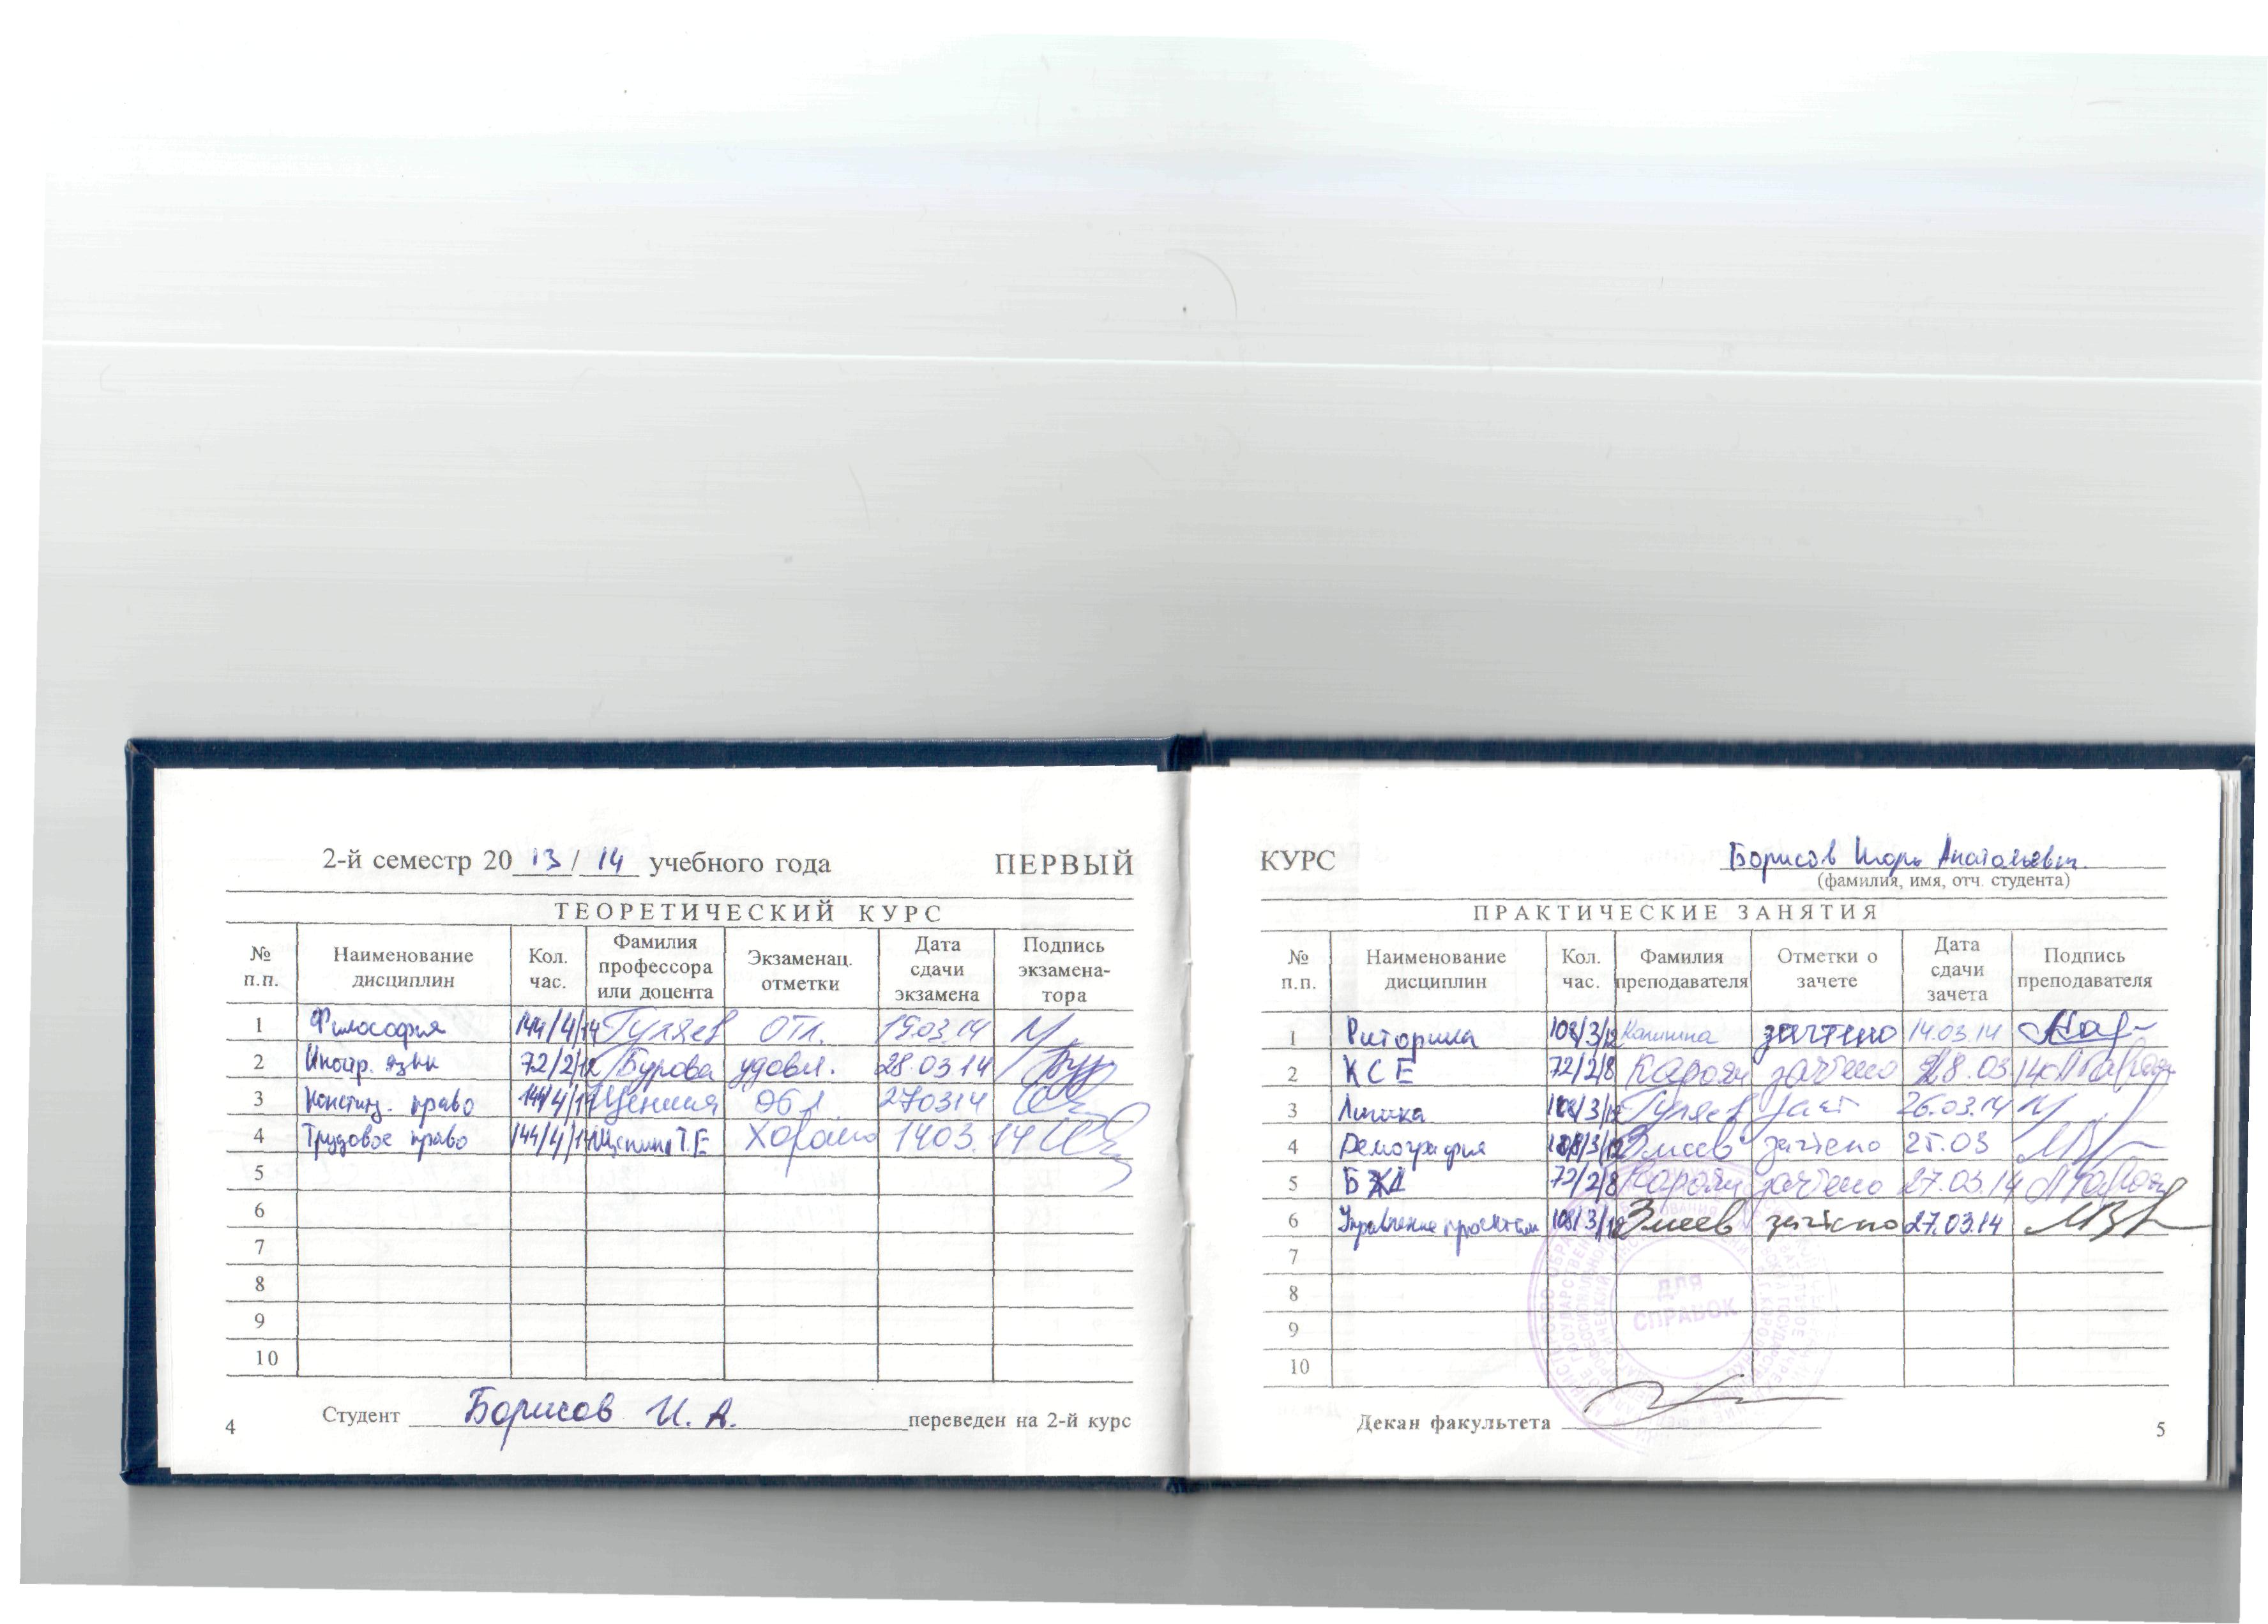 2-й семестр 20 13 / 14 учебного года ПЕРВЫЙ
ТЕОРЕТИЧЕСКИЙ КУРС
№ п.п. Наименование дисциплин Кол. час. Фамилия профессора или доцента Экзаменац. отметки Дата сдачи экзамена Подпись экзамена-тора
1 Философия 144/4/14 Гуляев отл. 19.03.14
2 Иностр. язык 72/2/12 Бурова удовл. 28.03.14
3 Конституц. право 144/4/14 270314
4 Трудовое право 144/4/14 Щепина Т.Е Хорошо 1403.14
5
6
7
8
9
10
Студент Борисов И. А. переведен на 2-й курс
4
КУРС Борисов Игорь Анатольевич
(фамилия, имя, отч. студента)
ПРАКТИЧЕСКИЕ ЗАНЯТИЯ
№ п.п. Наименование дисциплин Кол. час. Фамилия преподавателя Отметки о зачете Дата сдачи зачета Подпись преподавателя
1 Риторика 108/3/12 Калинина зачтено 14.03.14
2 КСЕ 72/2/8 зачтено 28.03.14
3 Логика 108/3/12 Гуляев зачт 26.03.14
4 Демография 108/3/12 Змеев зачтено 25.03
5 БЖД 72/2/8 зачтено 27.03.14
6 Управление проектами 108/3/12 Змеев зачтено 27.03.14
7
8
9
10
ДЛЯ
СПРАВОК
Декан факультета
5